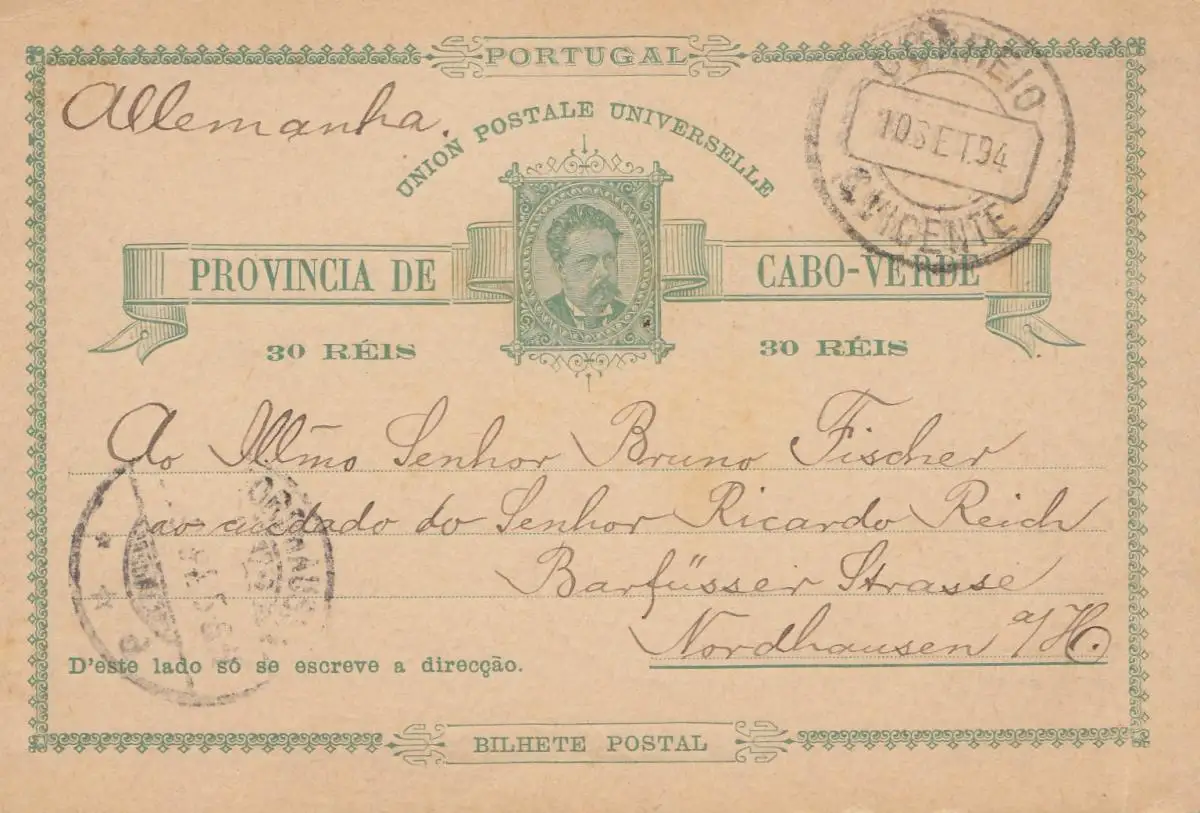 PORTUGAL
Allemanha.
UNION POSTALE UNIVERSELLE
CORREIO
10 SET. 94
S. VICENTE
PROVINCIA DE CABO-VERDE
30 RÉIS 30 RÉIS
Ao Illmo Senhor Bruno Fischer
ao cuidado do Senhor Ricardo Reich
Barfüsser Strasse
Nordhausen a/H.
D'este lado só se escreve a direcção.
BILHETE POSTAL